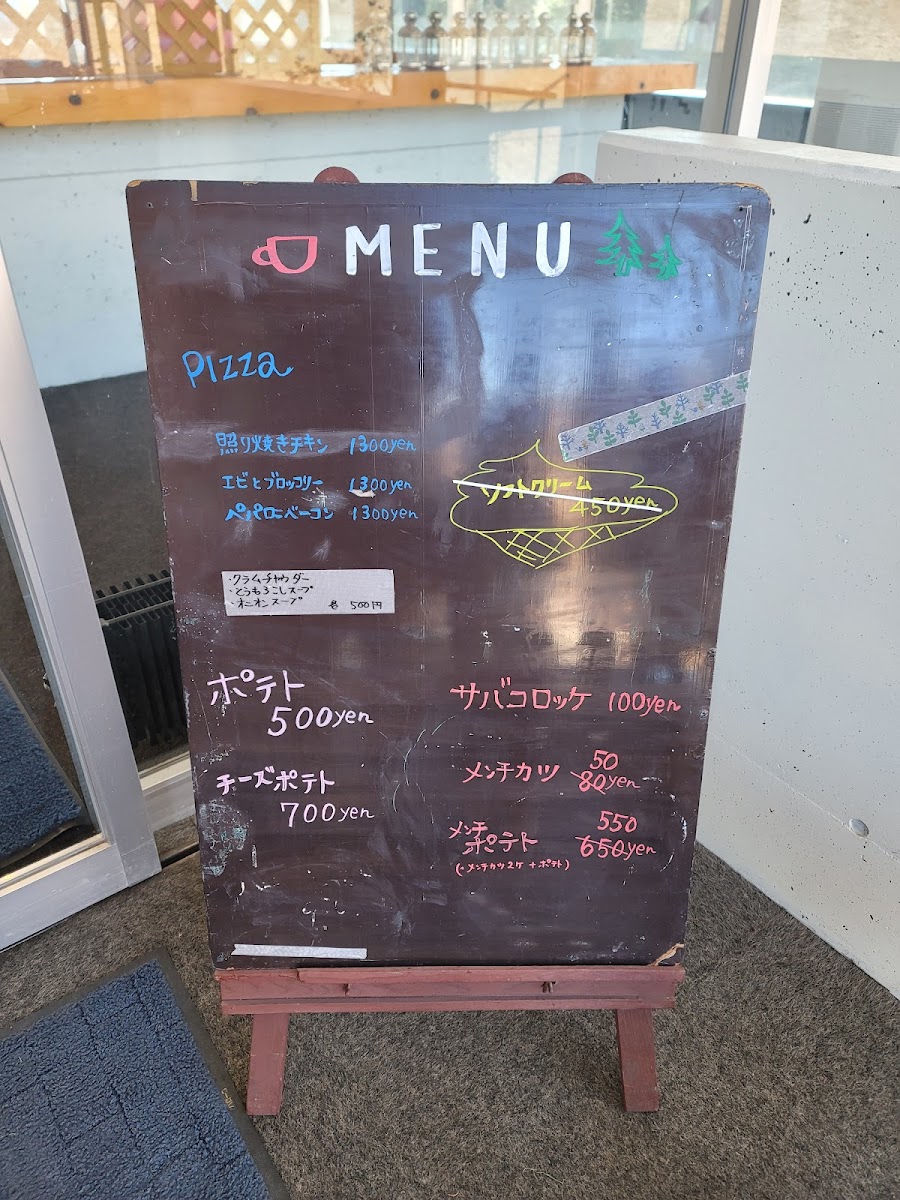 MENU
PIZZa
照り焼きチキン 1300yen
エビとブロッコリー 1300yen
ペパロニベーコン 1300yen
ソフトクリーム
450yen
・クラムチャウダー
・とうもろこしスープ
・オニオンスープ 各 500円
ポテト
500yen
チーズポテト
700yen
サバコロッケ 100yen
メンチカツ 50
80yen
メンチ
ポテト 550
650yen
(・メンチカツ2ケ+ポテト)